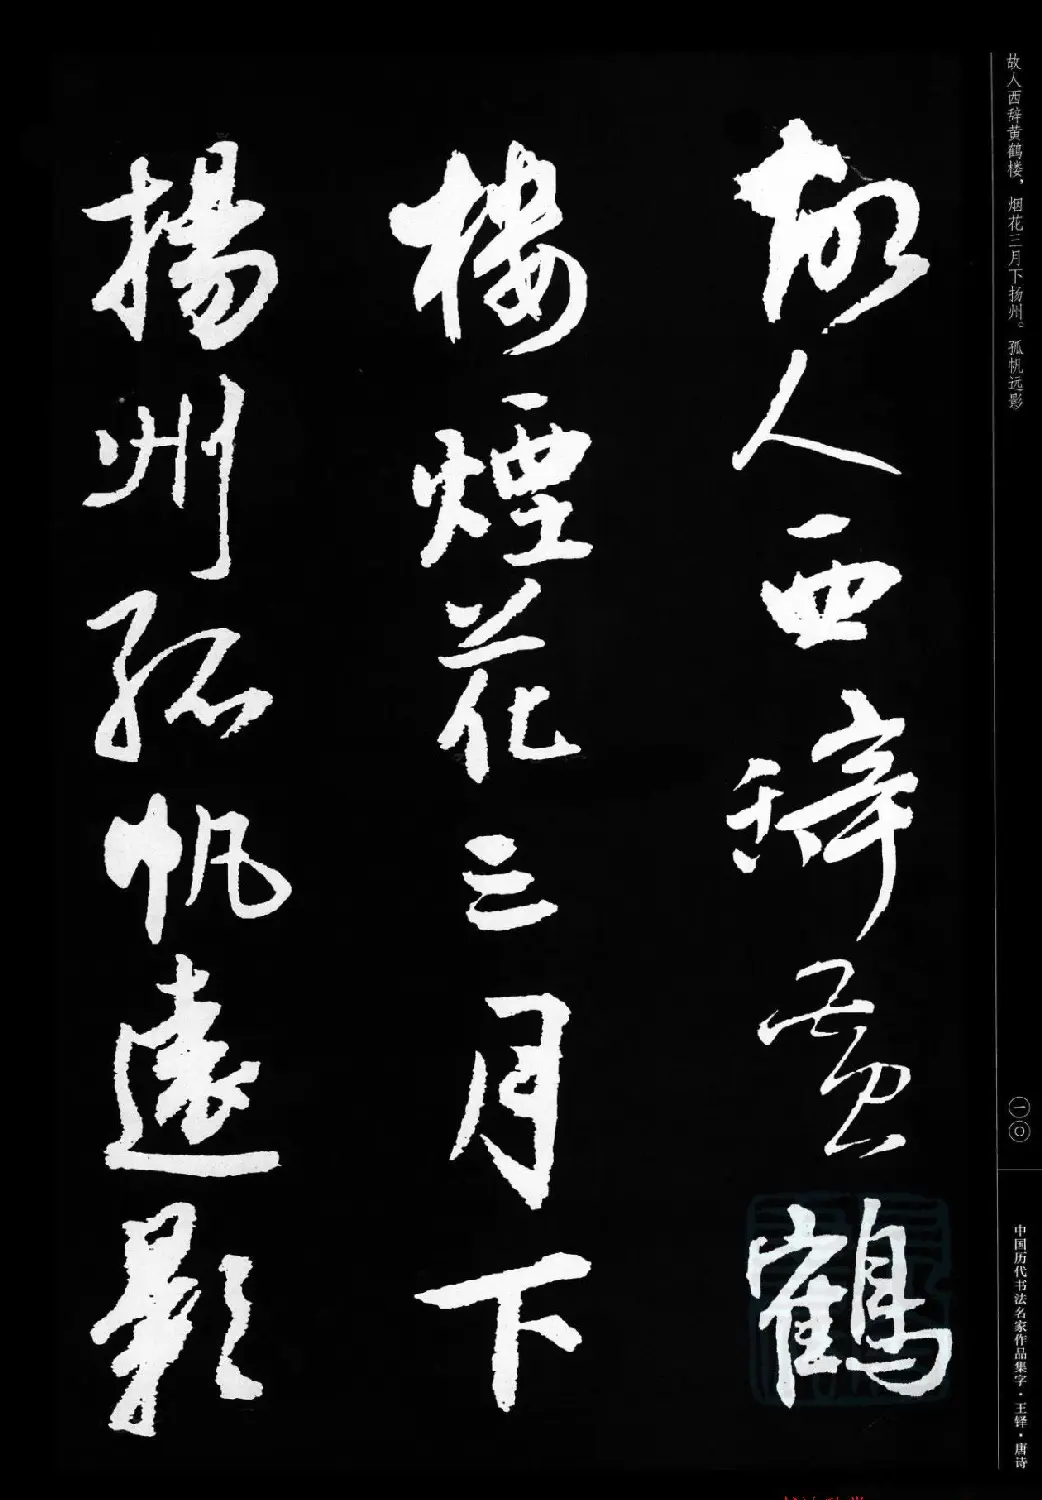 故人西辭黃鶴
樓煙花三月下
揚州孤帆遠影
故人西辞黄鹤楼，烟花三月下扬州。孤帆远影
一〇
中国历代书法名家作品集字·王铎·唐诗